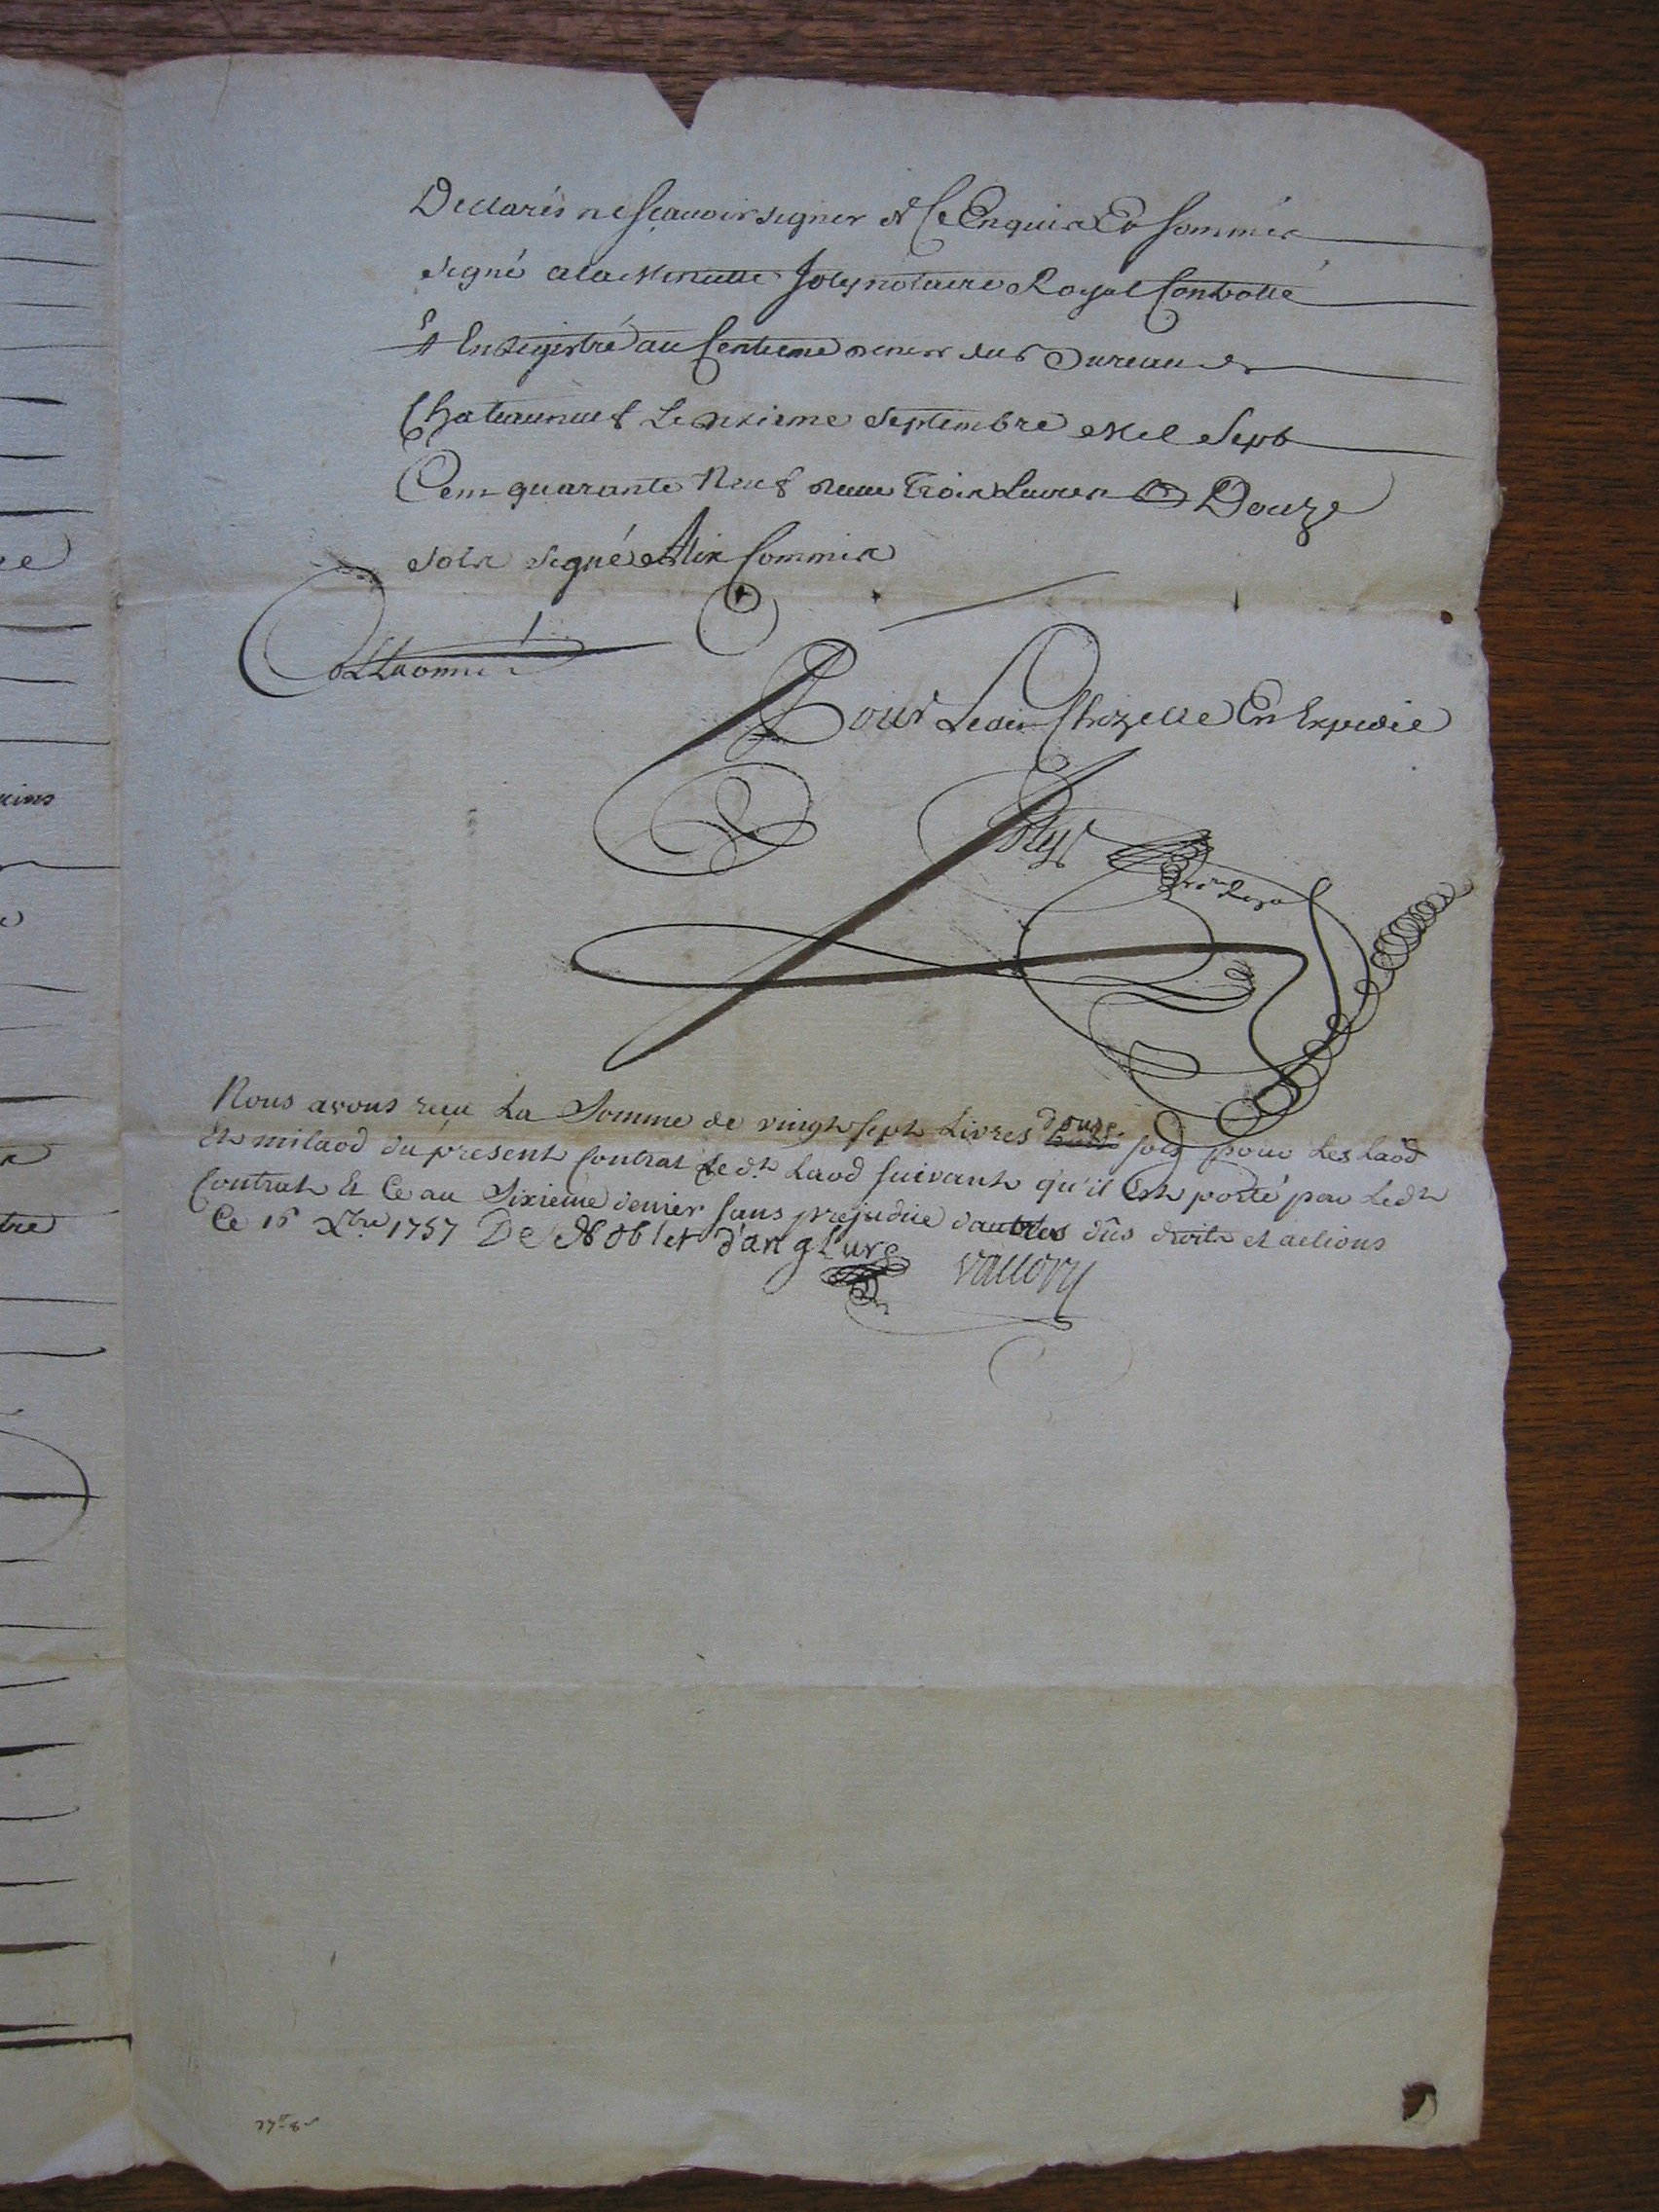 Declarés ne sçauoir signer de ce Enquis Et sommés
signé a la Minutte Joly notaire Royal Controllé
Et Enregistré au Centieme denier du Bureau de
Chateauneuf Le dixieme Septembre Mil Sept
Cent quarante Neuf Reçu Trois Livres Douze
Sols signé Alix Commis
Collationné
Pour Ledit Chozelle En Expedié
Joly
Nre Royal
Nous avons reçu La Somme de vingt sept Livres douze sols pour Les Laod
Et milaod du present Contrat Le dt. Laod suivant qu'il Est porté par Ledt
Contrat Et Ce au Sixieme denier sans prejudice dautres dûs droits et actions
Ce 16 Xbre 1757 De Noblet d'anglure
vallory